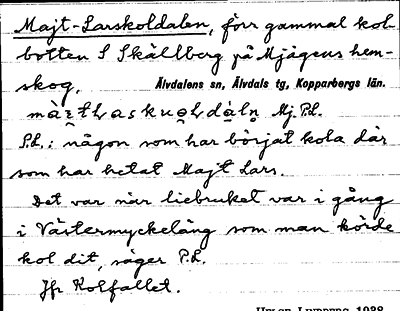 Majt-Larskoldalen, förr gammal kol-
botten S Skällberg på Mjågens hem-
skog. Älvdalens sn, Älvdals tg, Kopparbergs län.
Mj. P.L.
P.L.: någon som har börjat kola där
som har hetat Majt Lars.
Det var när liebruket var i gång
i Västermyckeläng som man körde
kol dit, säger P.L.
Jfr Kolfallet.